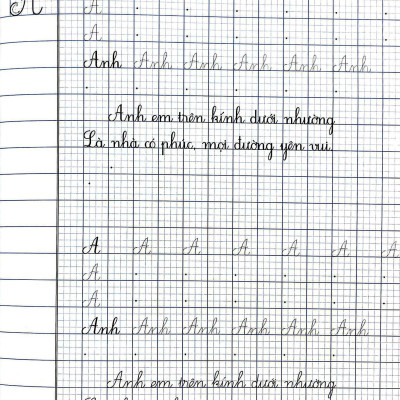 A
A
A
Anh Anh Anh Anh Anh Anh
Anh em trên kính dưới nhường
Là nhà có phúc, mọi đường yên vui.
A A A A A A A
A
A
Anh Anh Anh Anh Anh Anh
Anh em trên kính dưới nhường